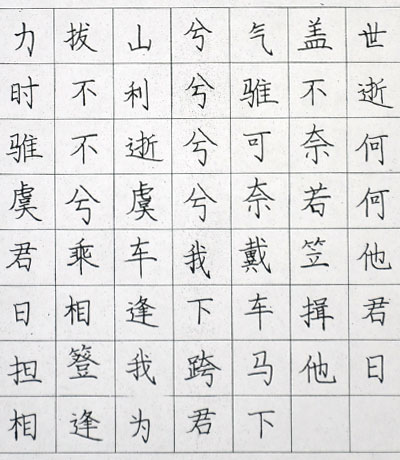 力拔山兮气盖世
时不利兮骓不逝
骓不逝兮可奈何
虞兮虞兮奈若何
君乘车我戴笠他
日相逢下车揖君
担簦我跨马他日
相逢为君下